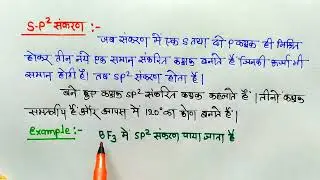 S-P² संकरण :-
जब संकरण में एक S तथा दो P कक्षक ही मिश्रित
होकर तीन नये एक समान संकरित कक्षक बनाते हैं जिनकी ऊर्जा भी
समान होती है। तब SP² संकरण होता है।
बने हुए कक्षक SP² संकरित कक्षक कहलाते हैं। तीनों कक्षक
समतलीय हैं और आपस में 120° का कोण बनाते हैं।
Example:- BF₃ में SP² संकरण पाया जाता है